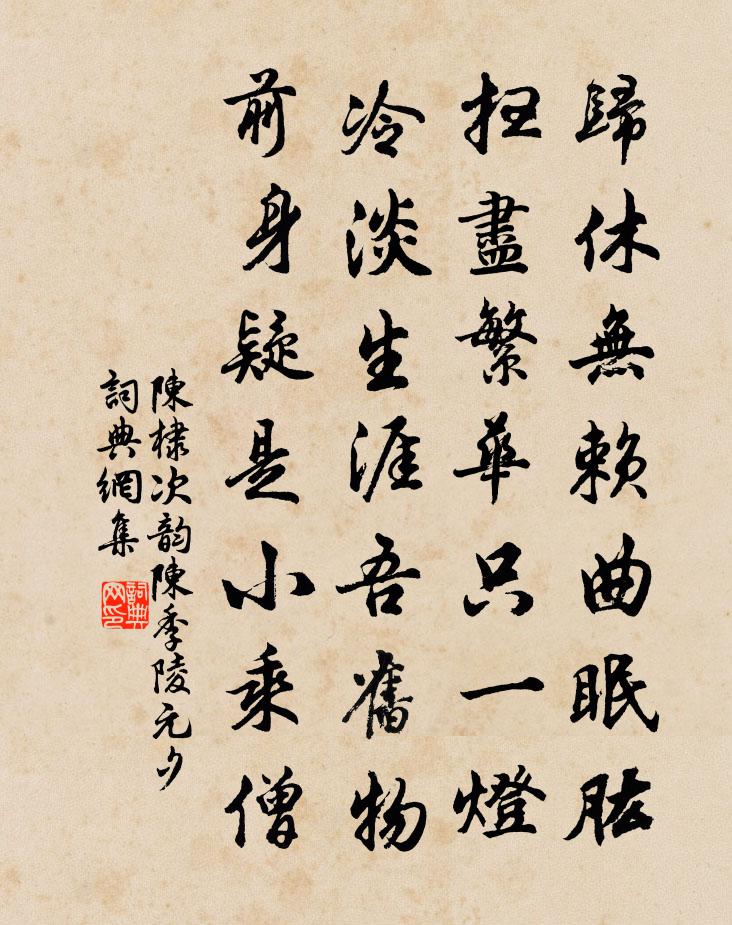 歸休無賴曲眠肱
扫盡繁華只一燈
冷淡生涯吾舊物
前身疑是小乘僧
陳棣次韵陳季陵元夕
詞典網集
詞典
网印